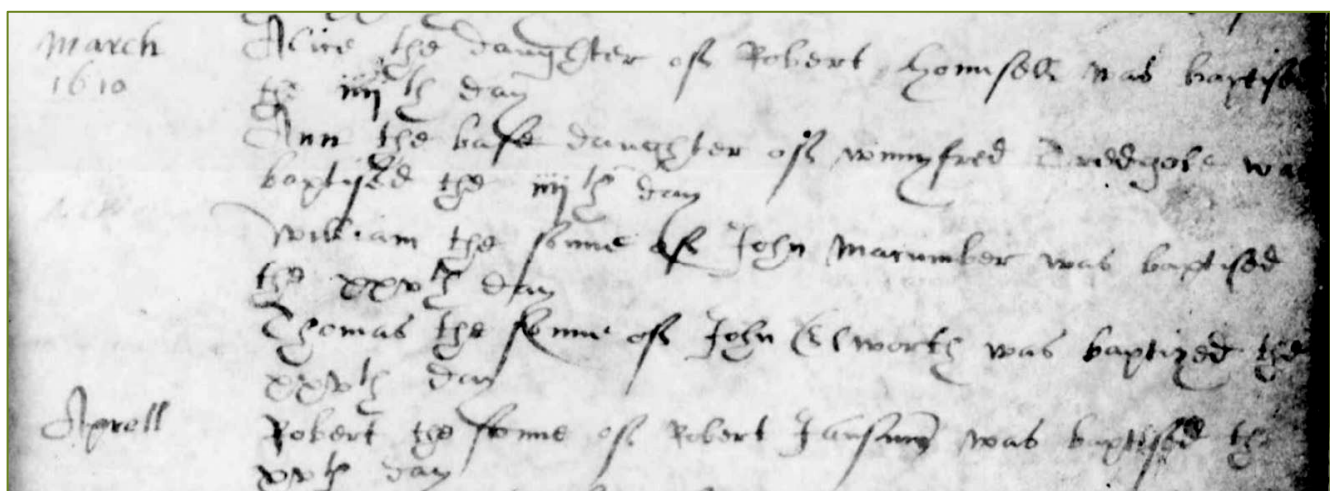 March Alice the daughter of Robert Hounsell was baptised
1610 the iiijth day
Ann the base daughter of wynnyfred was
baptised the iiijth day
William the sonne of John Macumber was baptised
the xxvth day
Thomas the sonne of John Elworth was baptized the
xxvth day
Aprell Robert the sonne of Robert was baptised the
xvth day